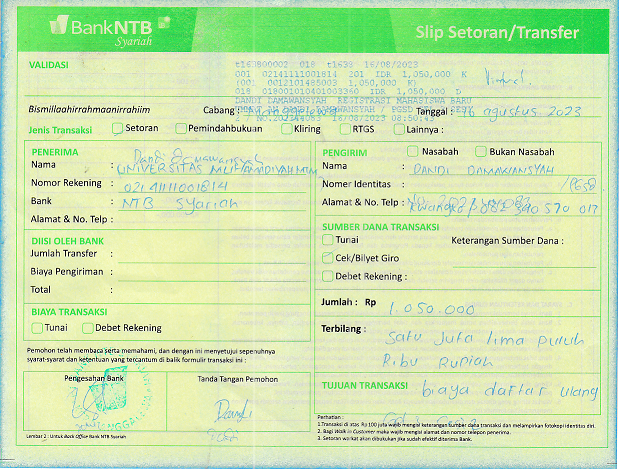 BankNTB
Syariah
Slip Setoran/Transfer
VALIDASI
t163800002 018 t1638 16/08/2023
001 0214111001814 201 IDR 1,050,000 K
001 (0012101485003 1,050,000 K)
018 0180010401003360 IDR 1,050,000 D
DANDI DAMAWANSYAH REGISTRASI MAHASISWA BARU
DAMAWANSYAH / PGSD
16/08/2023 08:50:43
Bismillaahirrahmaanirrahiim
Cabang :
Tanggal : 16 agustus 2023
Jenis Transaksi
Setoran
Pemindahbukuan
Kliring
RTGS
Lainnya :
PENERIMA
Nama : Dandi Damawansyah
UNIVERSITAS MUHAMADIYAH MTM
Nomor Rekening : 0214111001814
Bank : NTB Syariah
Alamat & No. Telp :
DIISI OLEH BANK
Jumlah Transfer :
Biaya Pengiriman :
Total :
BIAYA TRANSAKSI
Tunai
Debet Rekening
Pemohon telah membaca serta memahami, dan dengan ini menyetujui sepenuhnya
syarat-syarat dan ketentuan yang tercantum di balik formulir transaksi ini :
Pengesahan Bank
Tanda Tangan Pemohon
Dandi
Lembar 2 : Untuk Back Office Bank NTB Syariah
PENGIRIM
Nasabah
Bukan Nasabah
Nama : DANDI DAMAWANSYAH
Nomer Identitas : /PGSD
Alamat & No. Telp :
SUMBER DANA TRANSAKSI
Tunai
Keterangan Sumber Dana :
Cek/Bilyet Giro
Debet Rekening :
Jumlah : Rp 1.050.000
Terbilang : Satu Juta lima puluh
Ribu Rupiah
TUJUAN TRANSAKSI biaya daftar ulang
Perhatian :
1.Transaksi di atas Rp 100 juta wajib mengisi keterangan sumber dana transaksi dan melampirkan fotokopi identitas diri.
2. Bagi Walk in Customer maka wajib mengisi alamat dan nomor telepon penerima.
3. Setoran warkat akan dibukukan jika sudah efektif diterima Bank.